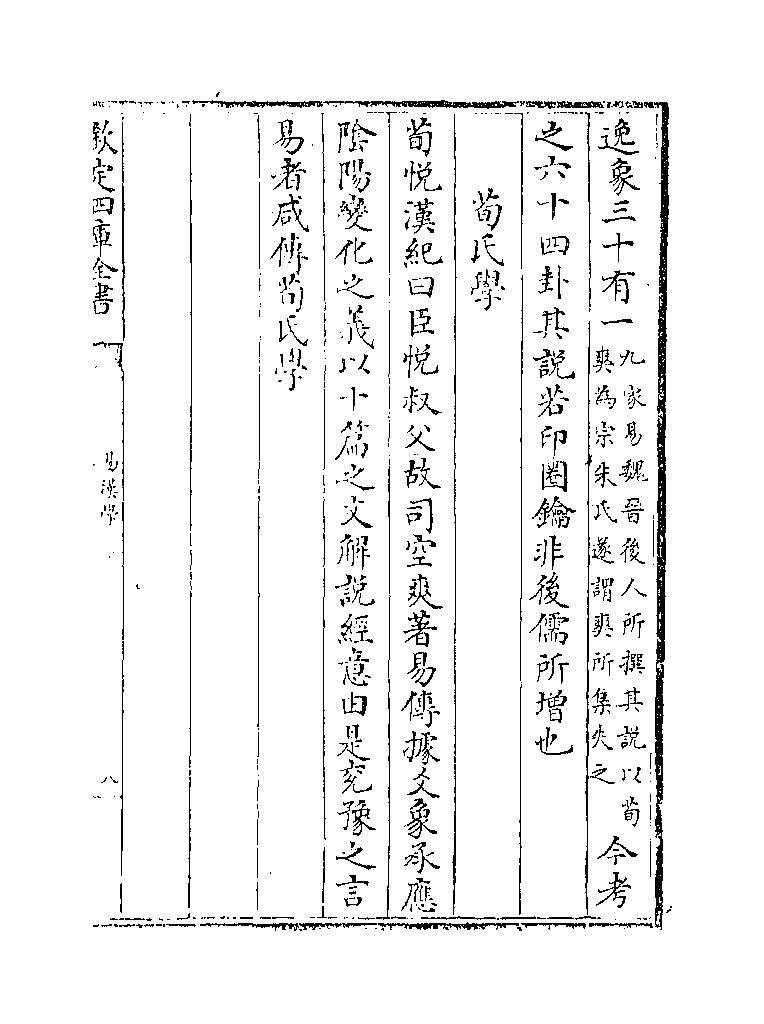 逸象三十有一九家易魏晉後人所撰其説以荀爽為宗朱氏遂謂爽所集失之今考
之六十四卦其説若印圏鑰非後儒所増也
荀氏學
荀悦漢紀曰臣悦叔父故司空爽著易傳據爻象承應
陰陽變化之義以十篇之文解説經意由是兖豫之言
易者咸傳荀氏學
欽定四庫全書
易漢學
八